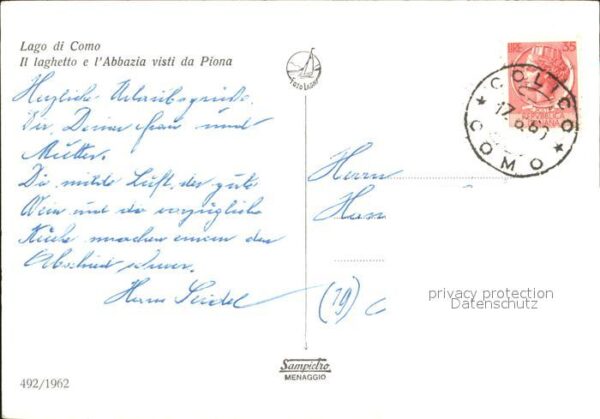 Lago di Como
Il laghetto e l'Abbazia visti da Piona
FOTO LARIO
LIRE 35
COLICO
COMO
Herzliche Urlaubsgrüße
Dir, Deiner Frau und
Mutter.
Die milde Luft, der gute
Wein und die vorzügliche
Küche machen einem den
Abschied schwer.
Seidel
Herrn
(19)
privacy protection
Datenschutz
Sampietro
MENAGGIO
492/1962